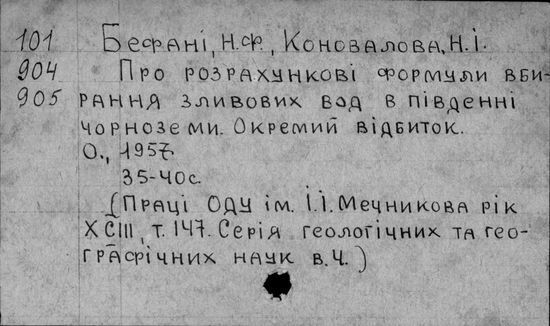 101 Бефані, Н.Ф., Коновалова, Н.І.
904 Про розрахункові формули вби-
905 рання зливових вод в південні
чорноземи. Окремий відбиток.
О., 1957.
35-40с.
(Праці ОДУ ім. І.І. Мечникова рік
XCIII, т. 147. Серія геологічних та гео-
графічних наук в.4.)